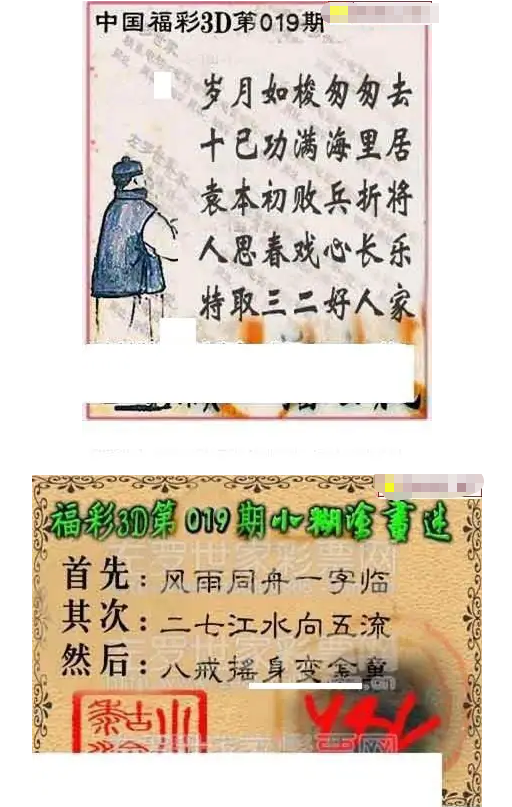 中国福彩3D第019期
岁月如梭匆匆去
十已功满海里居
袁本初败兵折将
人思春戏心长乐
特取三二好人家
福彩3D第019期小糊涂画迷
首先：风雨同舟一字临
其次：二七江水向五流
然后：八戒摇身变金童